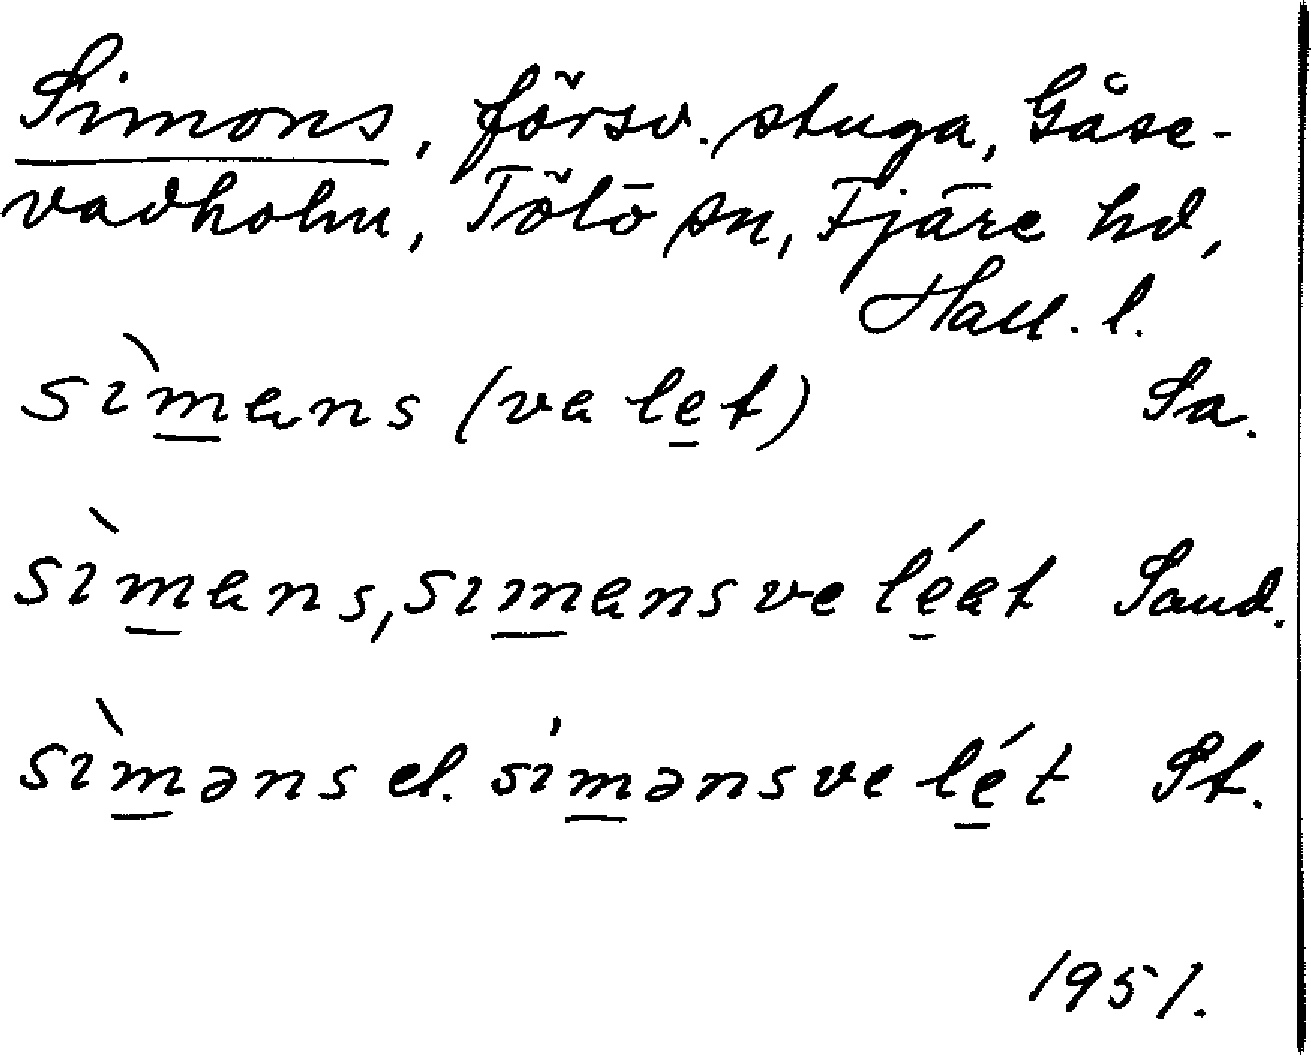 Simons, försv. stuga, Gåse-
vadholm, Tölö sn, Fjäre hd,
Hall. l.
sìmans (va let) Sa.
sìmans, simans ve léat Sand.
sìməns el. siməns ve lét St.
1951.